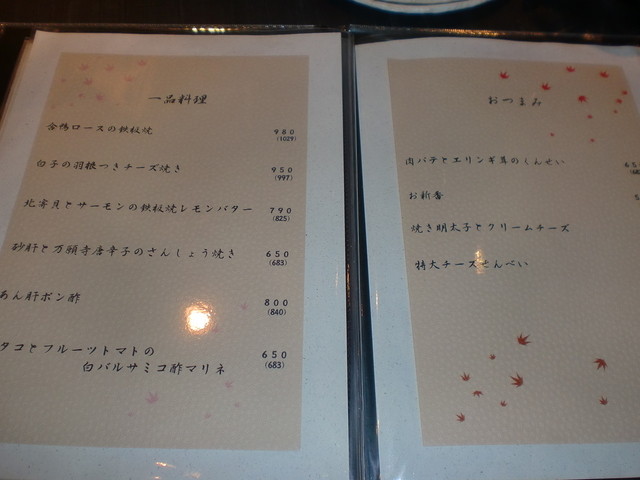 一品料理
合鴨ロースの鉄板焼 980
(1029)
白子の羽根つきチーズ焼き 950
(997)
北寄貝とサーモンの鉄板焼レモンバター 790
(825)
砂肝と万願寺唐辛子のさんしょう焼き 650
(683)
あん肝ポン酢 800
(840)
タコとフルーツトマトの 650
白バルサミコ酢マリネ (683)
おつまみ
肉パテとエリンギ茸のくんせい
お新香
焼き明太子とクリームチーズ
特大チーズせんべい